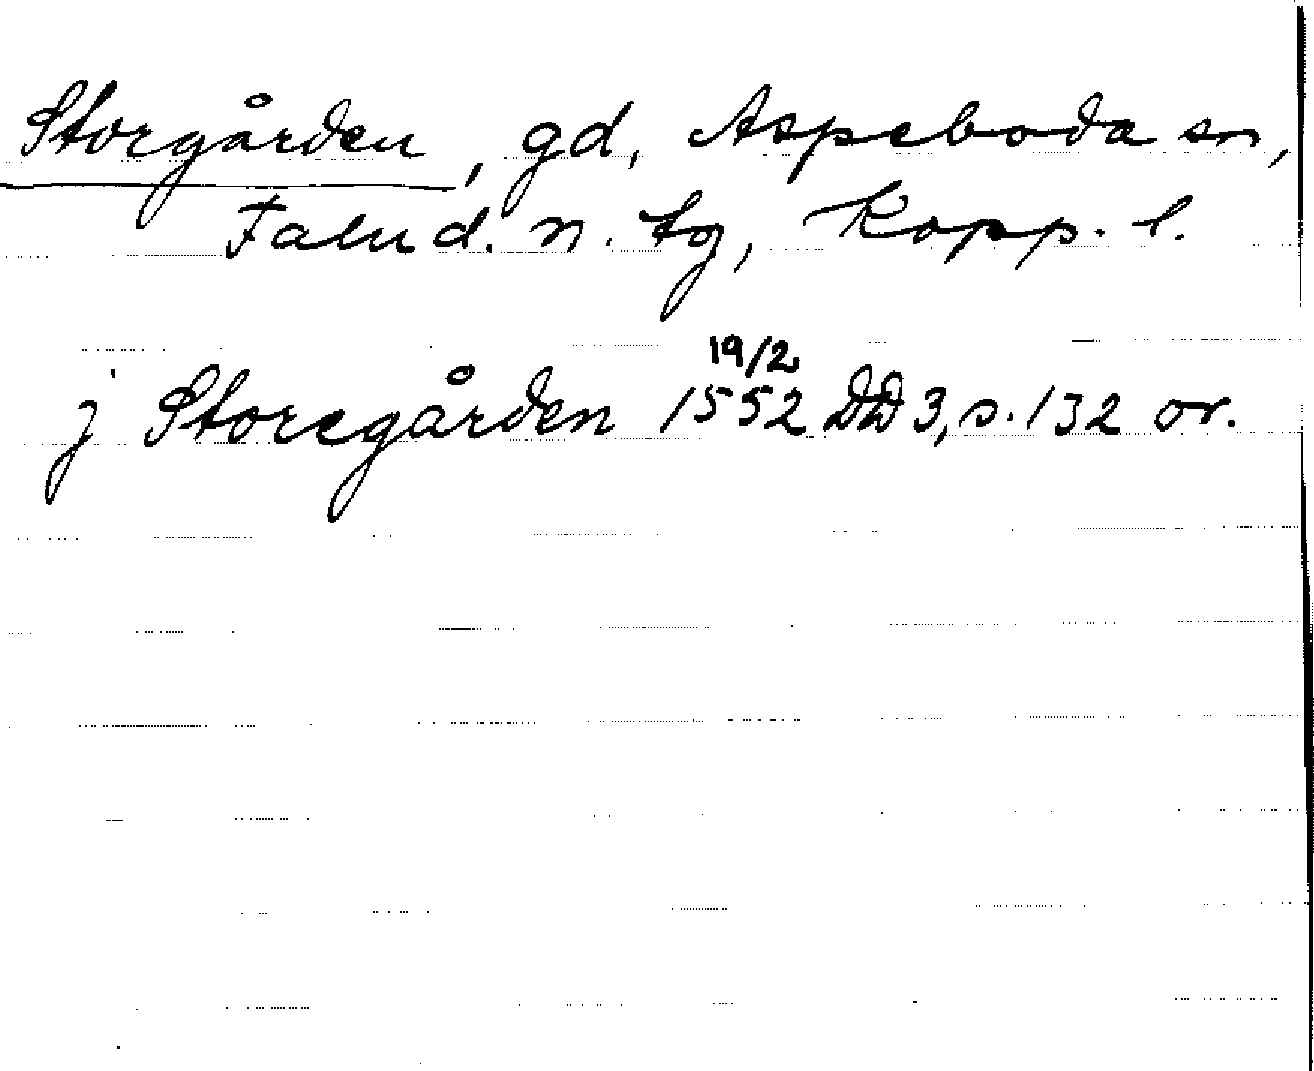 Storgården, gd, Aspeboda sn,
Falu d. n. tg, Kopp. l.
19/2
j Storegården 1552 DD 3, s. 132 or.